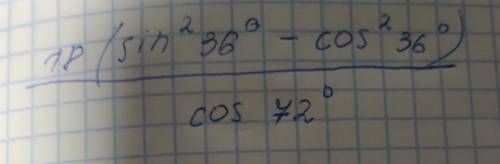 18 (sin² 36° - cos² 36°)
cos 72°